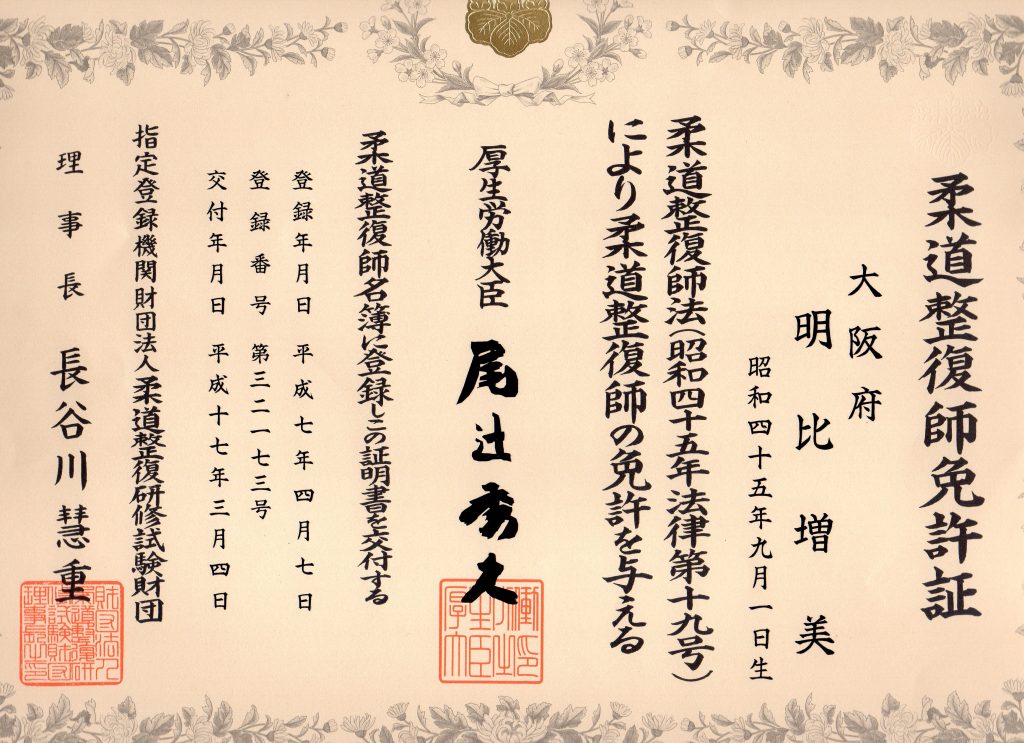 柔道整復師免許証
大阪府
明比増美
昭和四十五年九月一日生
柔道整復師法(昭和四十五年法律第十九号)
により柔道整復師の免許を与える
厚生労働大臣 尾辻秀久
柔道整復師名簿に登録しこの証明書を交付する
登録年月日 平成七年四月七日
登録番号 第三二一七三号
交付年月日 平成十七年三月四日
指定登録機関財団法人柔道整復研修試験財団
理事長 長谷川慧重